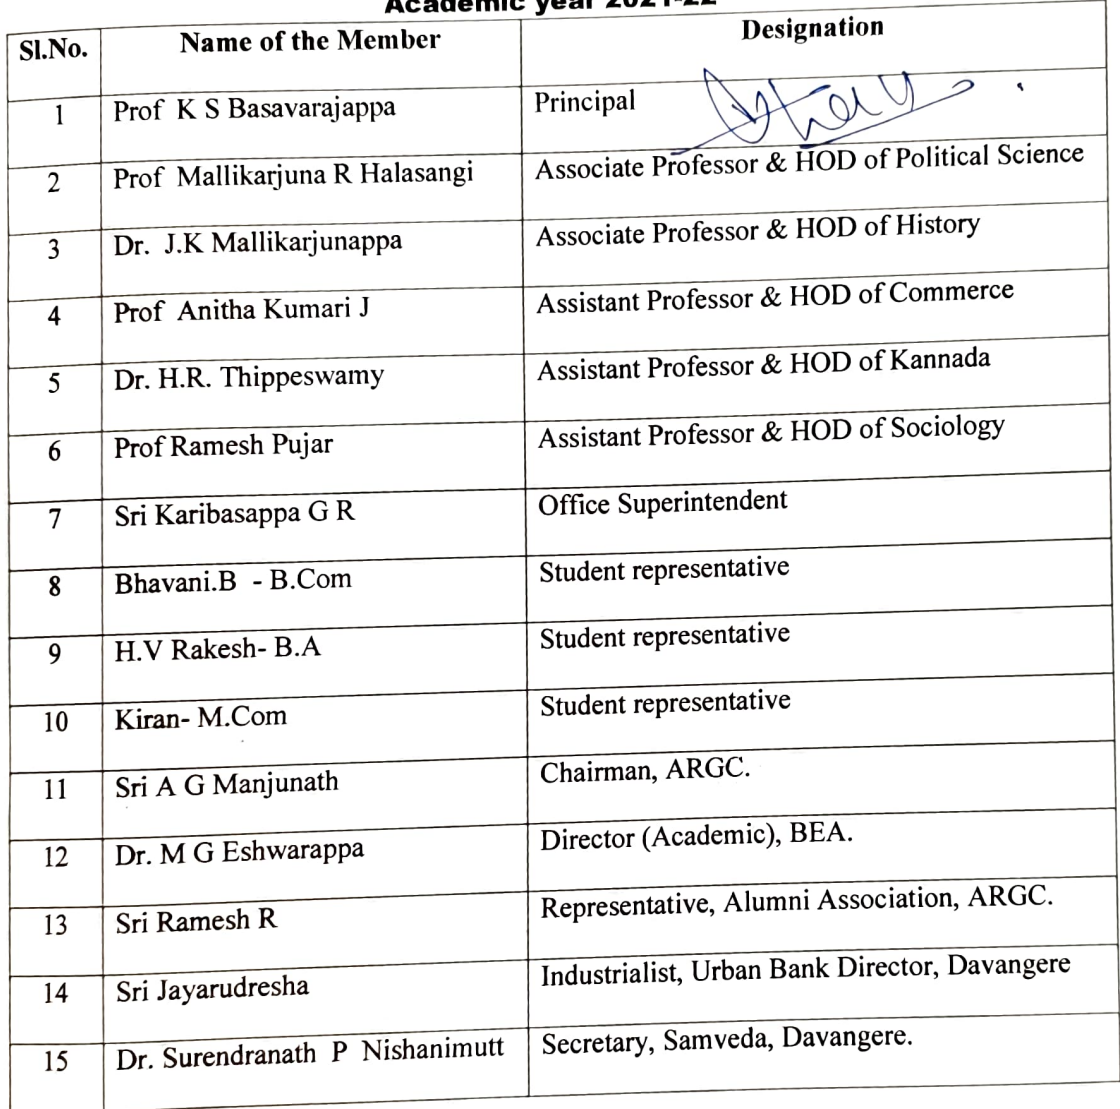 Academic year 2021-22
Sl.No. Name of the Member Designation
1 Prof K S Basavarajappa Principal
2 Prof Mallikarjuna R Halasangi Associate Professor & HOD of Political Science
3 Dr. J.K Mallikarjunappa Associate Professor & HOD of History
4 Prof Anitha Kumari J Assistant Professor & HOD of Commerce
5 Dr. H.R. Thippeswamy Assistant Professor & HOD of Kannada
6 Prof Ramesh Pujar Assistant Professor & HOD of Sociology
7 Sri Karibasappa G R Office Superintendent
8 Bhavani.B - B.Com Student representative
9 H.V Rakesh- B.A Student representative
10 Kiran- M.Com Student representative
11 Sri A G Manjunath Chairman, ARGC.
12 Dr. M G Eshwarappa Director (Academic), BEA.
13 Sri Ramesh R Representative, Alumni Association, ARGC.
14 Sri Jayarudresha Industrialist, Urban Bank Director, Davangere
15 Dr. Surendranath P Nishanimutt Secretary, Samveda, Davangere.